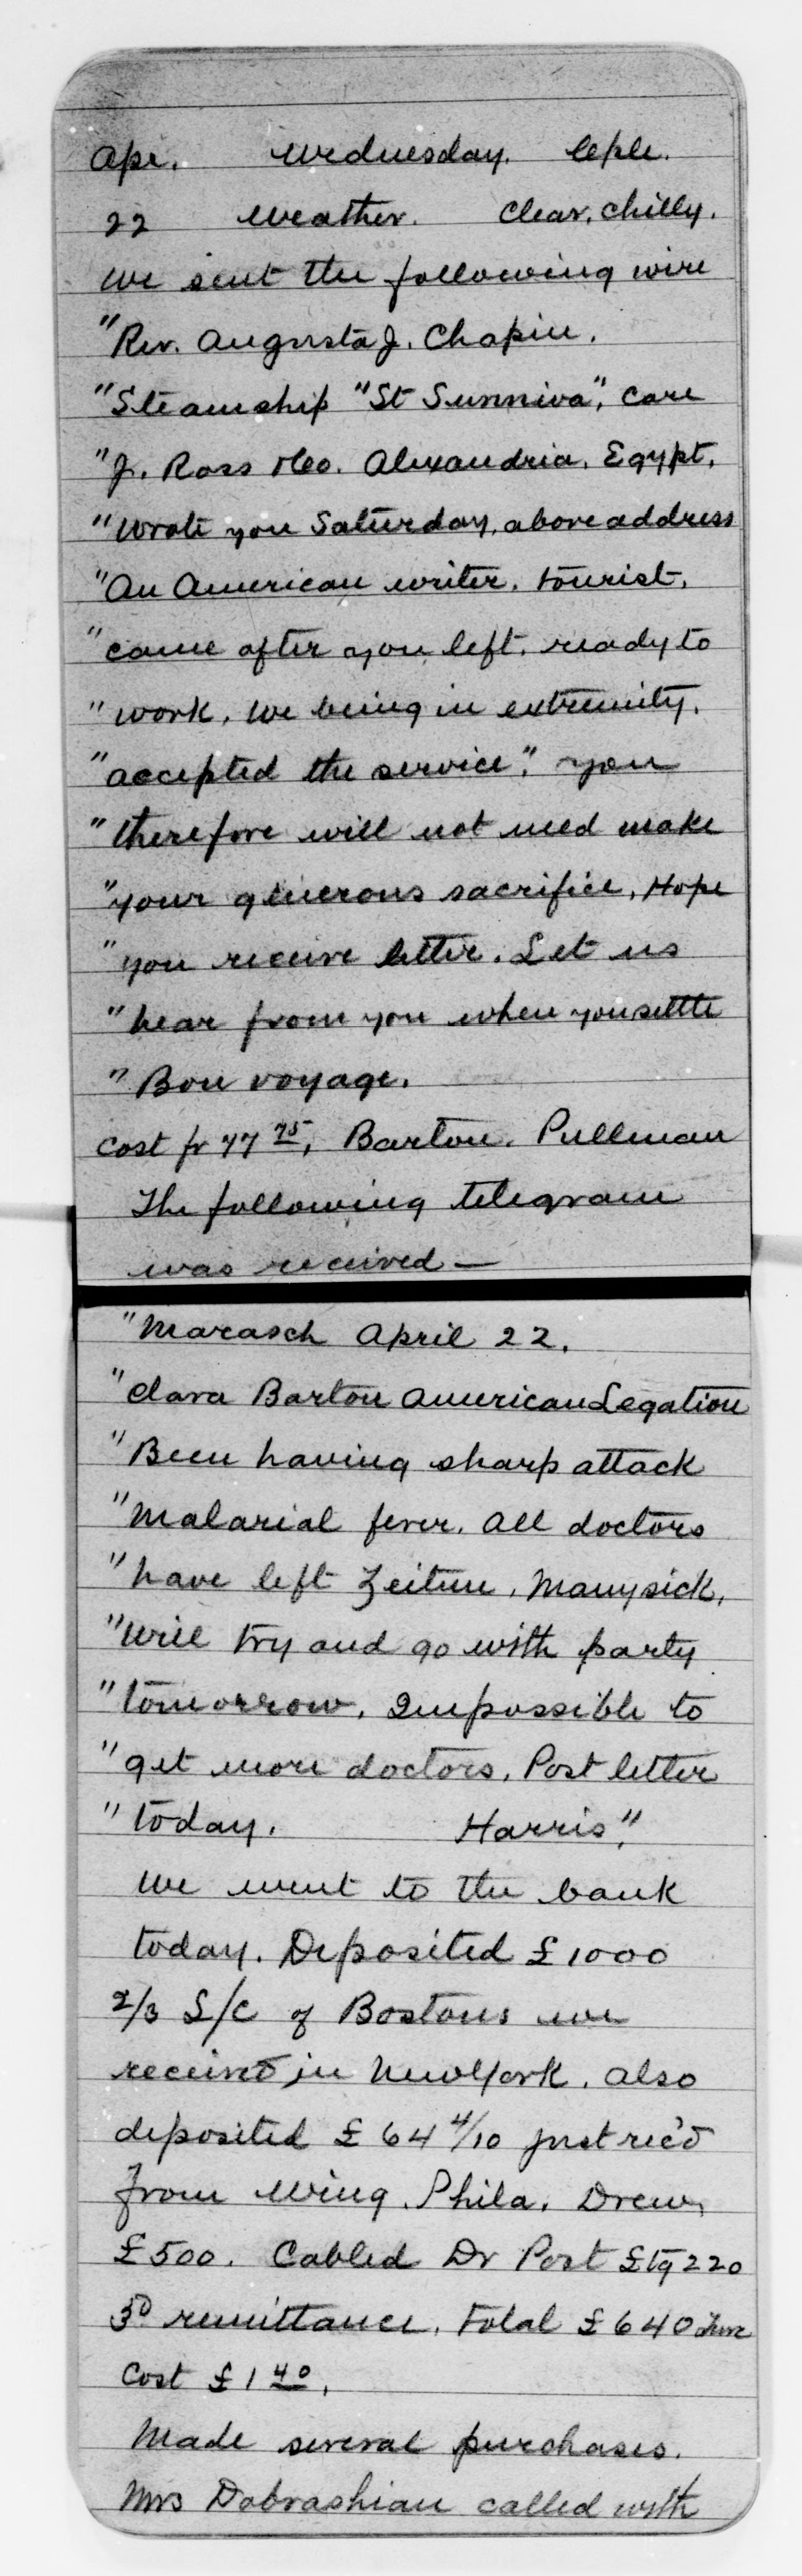 Apr. Wednesday. Cple.
22 Weather. Clear, chilly.
We sent the following wire
"Rev. Augusta J. Chapin.
"Steamship "St Sunniva", care
"J. Ross &Co. Alexandria, Egypt.
"Wrote you Saturday, above address
"An American writer, tourist,
"came after you left, ready to
"work, we being in extremity,
"accepted the service". You
"therefore will not need make
"your generous sacrifice, Hope
"you receive letter. Let us
"hear from you when you settle
"Bon voyage.
Cost fr 77 75, Barton. Pullman
The following telegram
was received —
"Marasch April 22.
"Clara Barton American Legation
"Been having sharp attack
"Malarial fever. All doctors
"have left Zeitun, Many sick,
"Will try and go with party
"tomorrow, Impossible to
"get more doctors, Post letter
"today. Harris".
We went to the bank
today. Deposited £1000
2/3 L/C of Bostons we
received in New York, also
deposited £64 4/10 just rec'd
from Wing, Phila. Drew
£500. Cabled Dr Post £tq 220
3d remittance, total £640
Cost £1 40,
Made several purchases.
Mrs Dobrashian called with